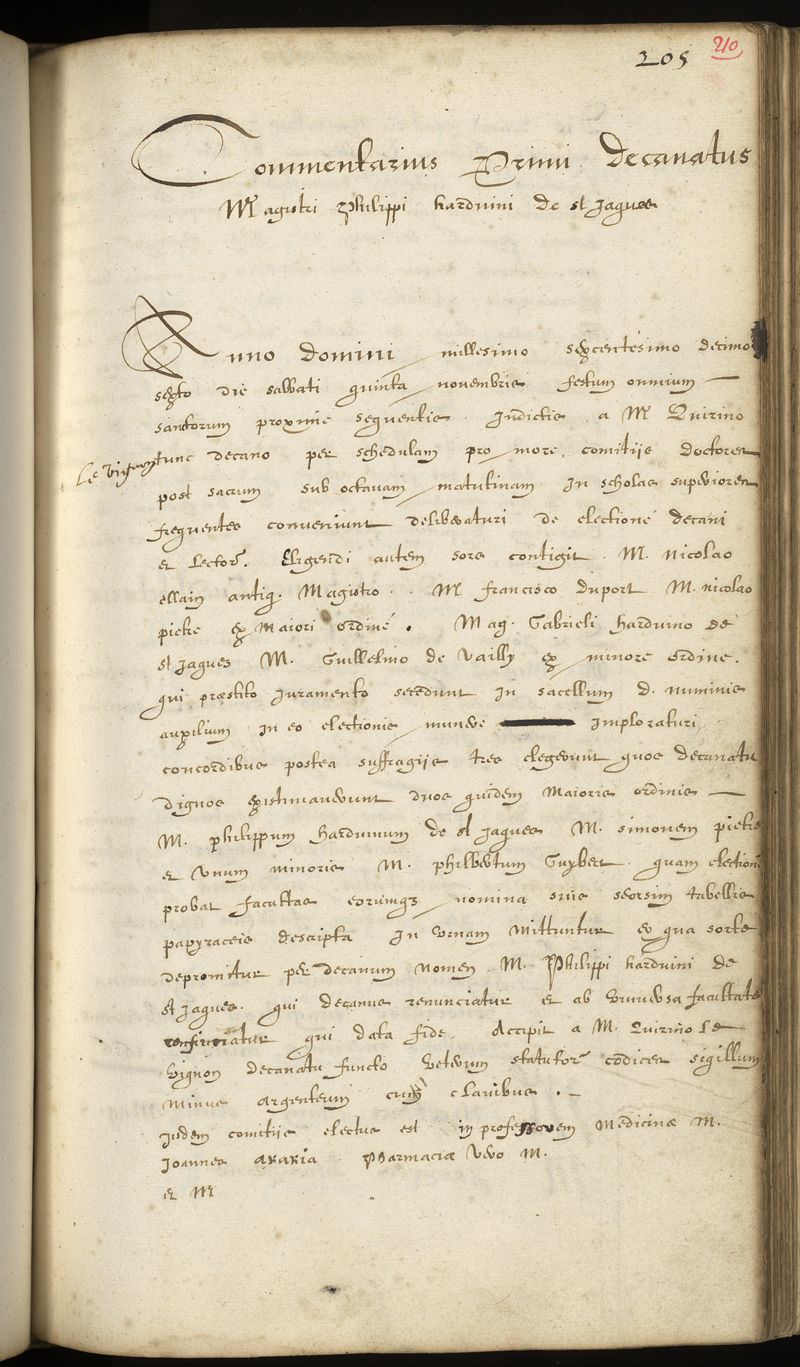 205 210
Commentarius Primi decanatus
Mri agistri Philippi harduini de st Jaques
Anno domini millesimo sexcentesimo decimo
sexto die sabbati quinta novembris festum omnium —
sanctorum proxime sequentis. Indictis a Mro Quirino
Le vignon
tunc decano per schedulam pro more, comitijs doctores
post sacrum sub octavam matutinam In scholas superiores
frequentes conveniunt deliberaturi de electione decani
et Lector. Eligendi autem sors contigit. M. Nicolao
ellain antiq. Magistro.. Mr francisco duport M. nicolao
pietre ex maiori ordine. Mag. Gabrieli harduino de
st Jaques M. Guillelmo de Vailly ex minore ordine.
qui præstito Juramento secedunt In sacellum d. numinis
auxilium in eo electionis munere Imploraturi,
concordibus postea suffragijs tres elegerunt quos decanatu
dignos existimaverunt duos quidem Maioris ordinis —
M. philippum harduinum de st Jaques M. simonem pietre
et Unum minoris M. philibertum Guybert. quam electionē
probat facultas eorumq3 nomina suis seorsim tabellis
papyraceis descripta In Urnam Mittuntur ex qua sorte
depromitur per decanum nomen M. Philippi harduini de
st Jaques. qui decanus renunciatur et ab Universa facultate
qui data fide. Accipit a M. Quirino Le
Vignon decanatu functo Veterum statutor codices sigillum
Minus argenteum cum clavibus. –
iisdem comitijs electus est in professorem Medicinæ M.
Joannes akakia. Pharmaciæ Vero M.
et Mr